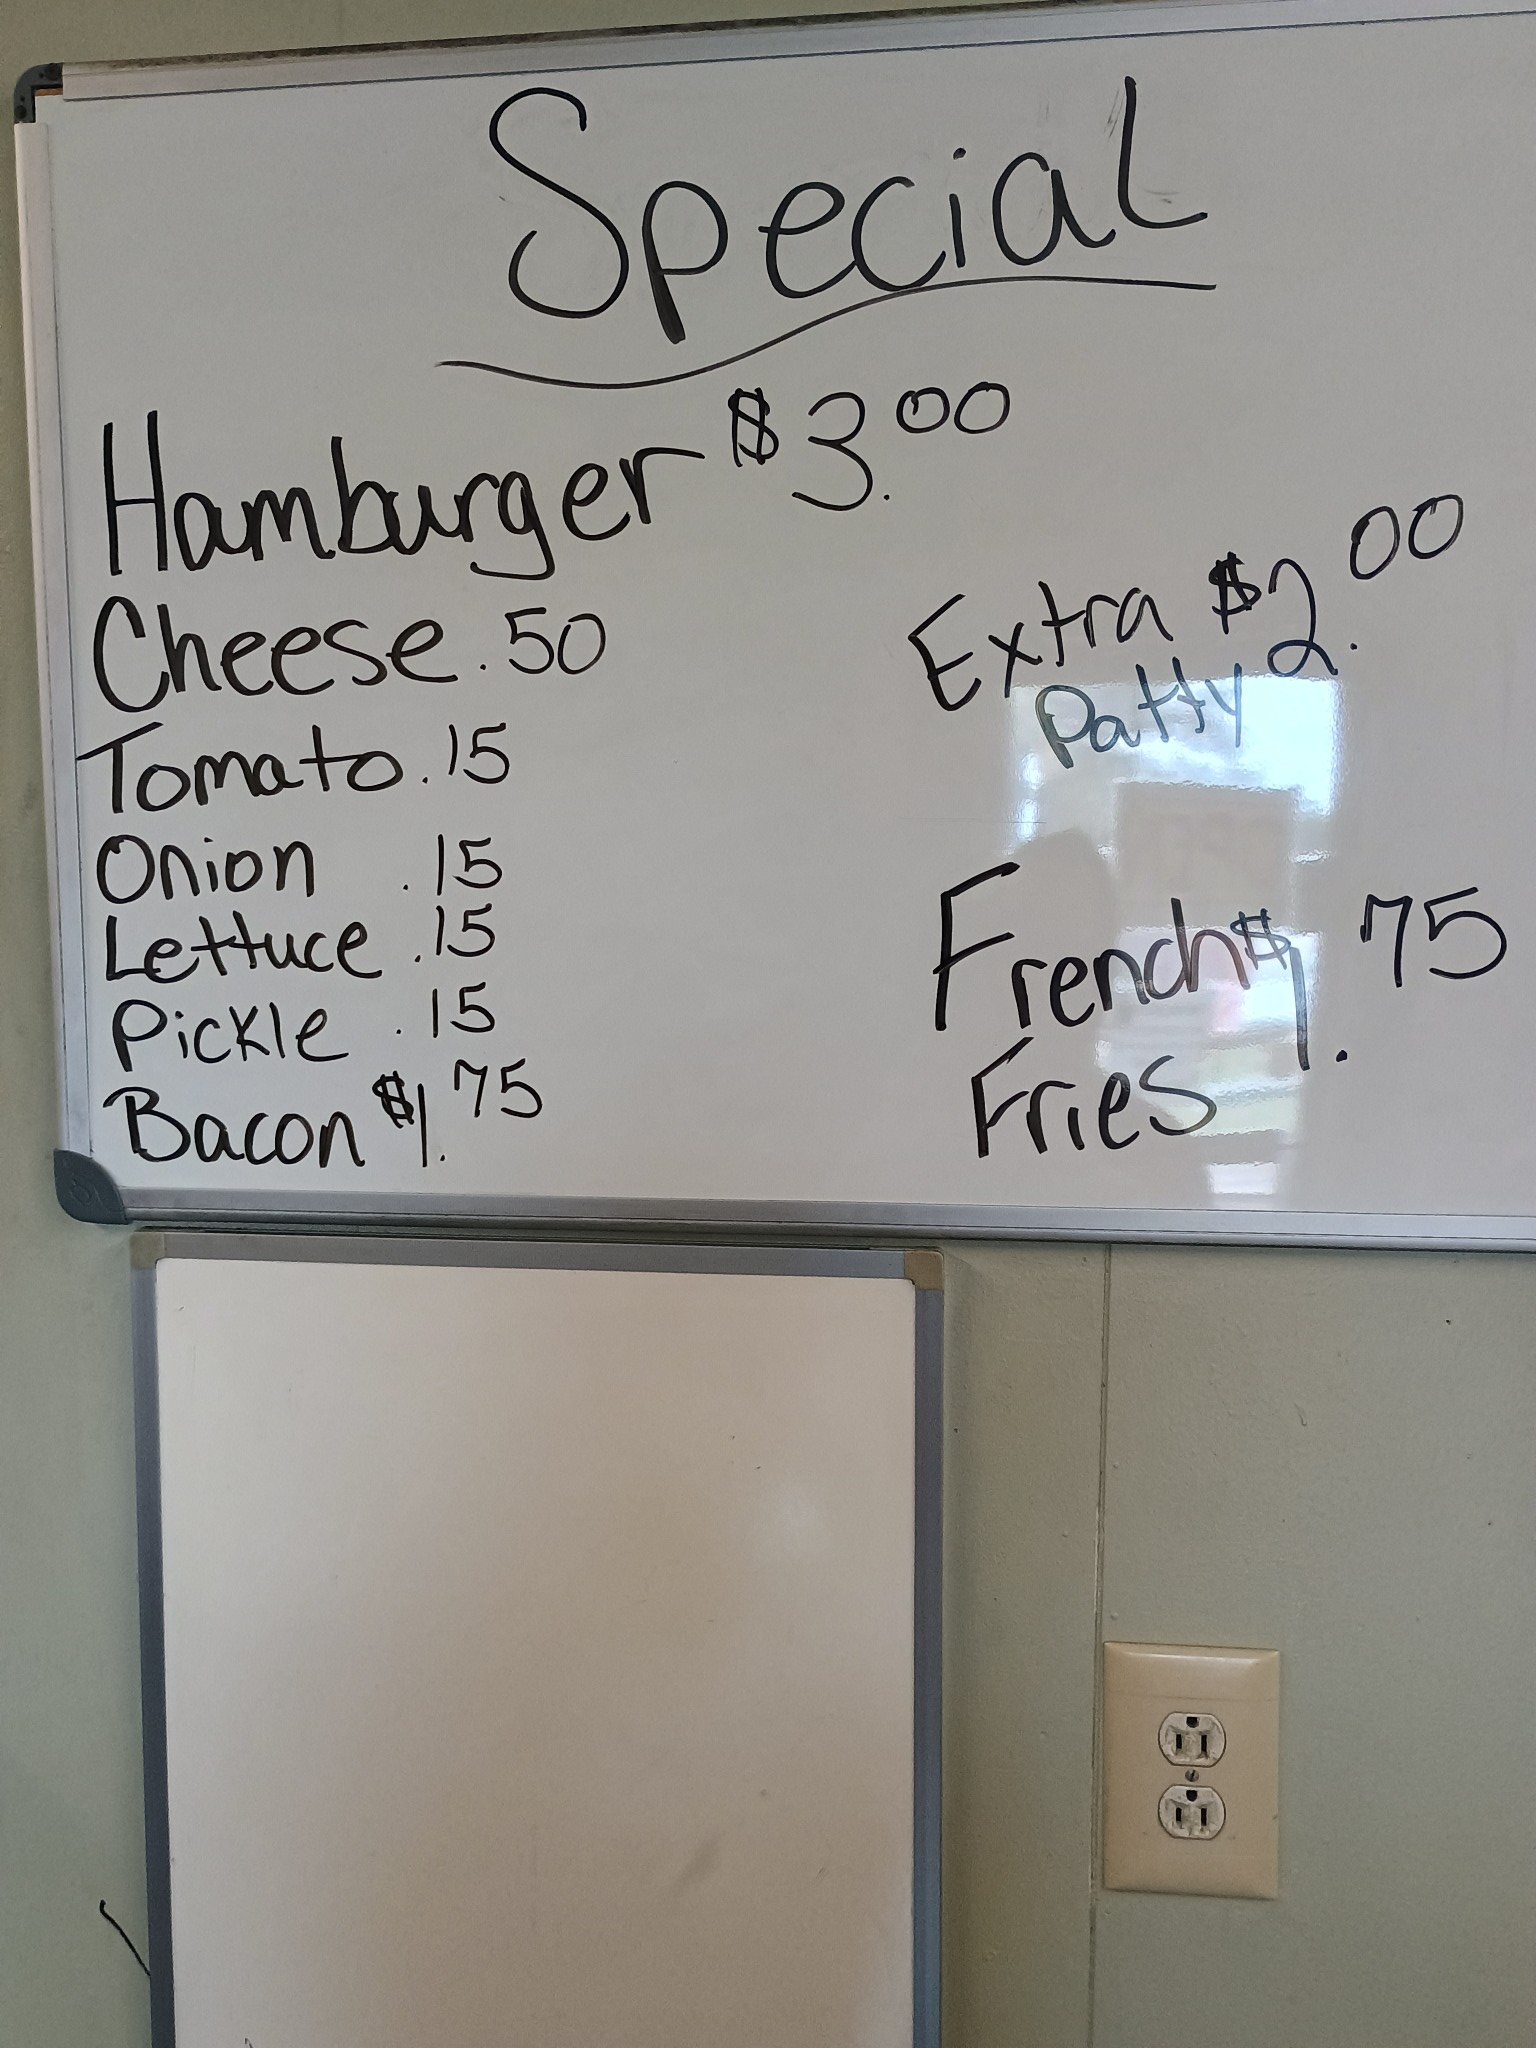 Special
Hamburger $3.00
Cheese .50
Tomato .15
Onion .15
Lettuce .15
Pickle .15
Bacon $1.75
Extra $2.00
Patty
French $1.75
Fries